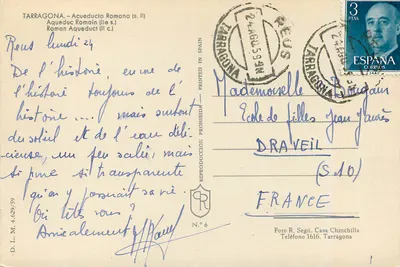 TARRAGONA. - Acueducto Romano (s. II)
Aqueduc Romain (IIe s.)
Roman Aqueduct (II c.)
Reus lundi 24
De l'histoire, encore de
l'histoire toujours de l'
histoire .... mais surtout
du soleil et de l'eau déli-
cieuse, un peu salée, mais
si pure si transparente
qu'on y passerait sa vie.
Où êtes vous?
Amicalement
D. L. M. 4.629/59
REPRODUCCION PROHIBIDA - PRINTED IN SPAIN
CR
N.º 6
REUS
TARRAGONA
REUS
TARRAGONA
3
PTAS
ESPAÑA
CORREOS
Mademoiselle
Ecole de filles Jean Jaurès
DRAVEIL
(S & O)
FRANCE
Foto R. Segú, Casa Chinchilla
Teléfono 1616. Tarragona